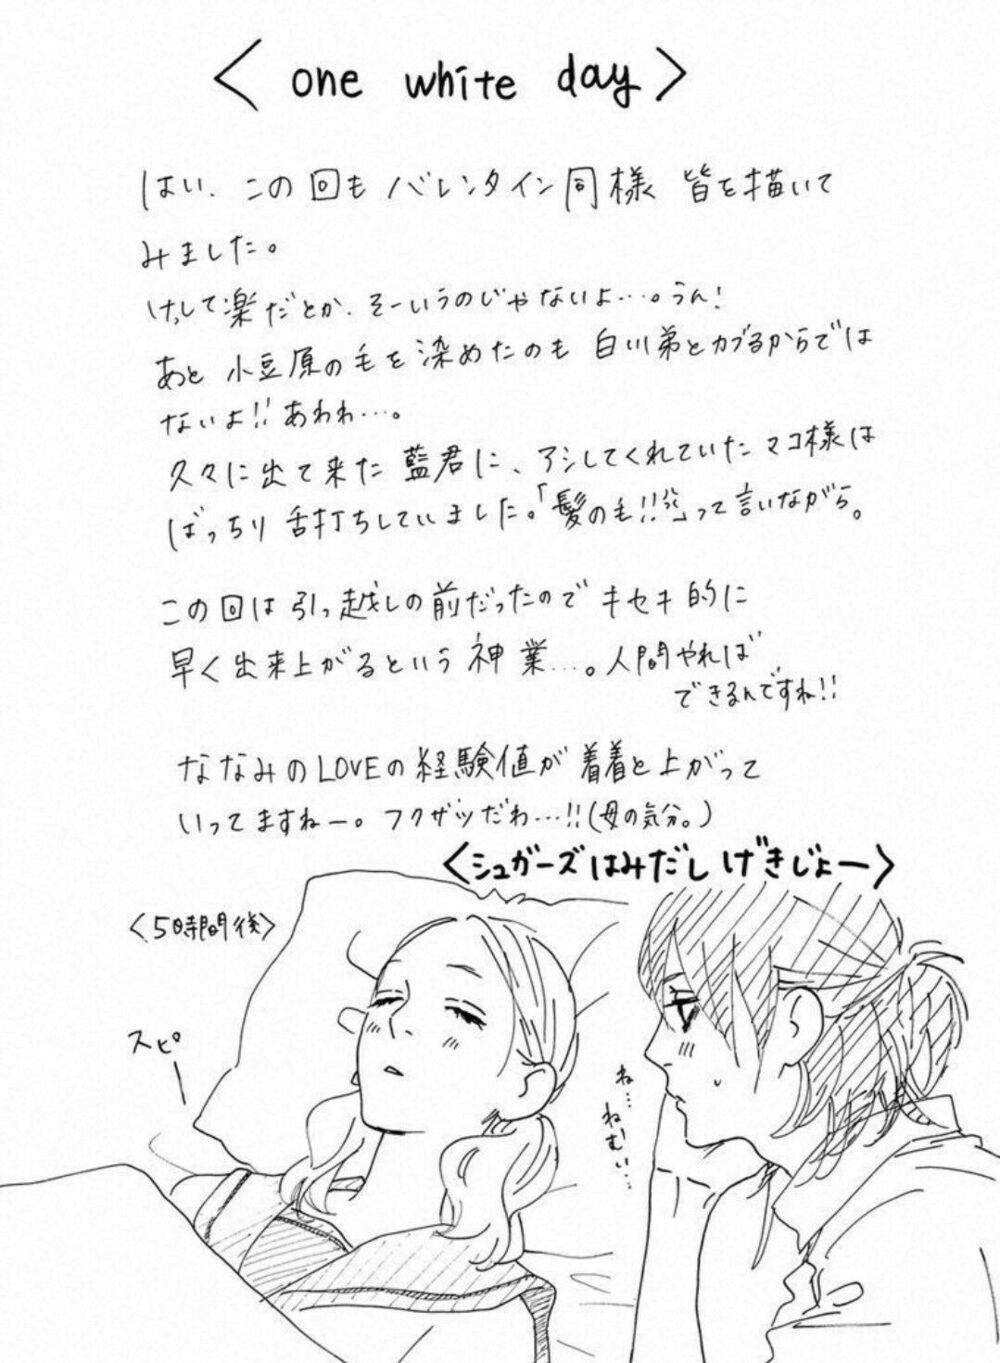 <one white day>
はい、この回もバレンタイン同様 皆を描いて
みました。
けっして楽だとか、そーいうのじゃないよ…。うん!
あと 小豆原の毛を染めたのも 白川弟とカブるからでは
ないよ!!あわわ…。
久々に出て来た 藍君に、アシしてくれていたマコ様は
ばっちり 舌打ちしていました。「髪の毛!!」って言いながら。
この回は引っ越しの前だったのでキセキ的に
早く出来上がるという神業…。人間やれば、
できるんですね!!
ななみのLOVEの経験値が着着と上がって
いってますねー。フクザツだわ…!!(母の気分。)
<シュガーズはみだしげきじょー>
<5時間後>
スピ
ね…ねむい…